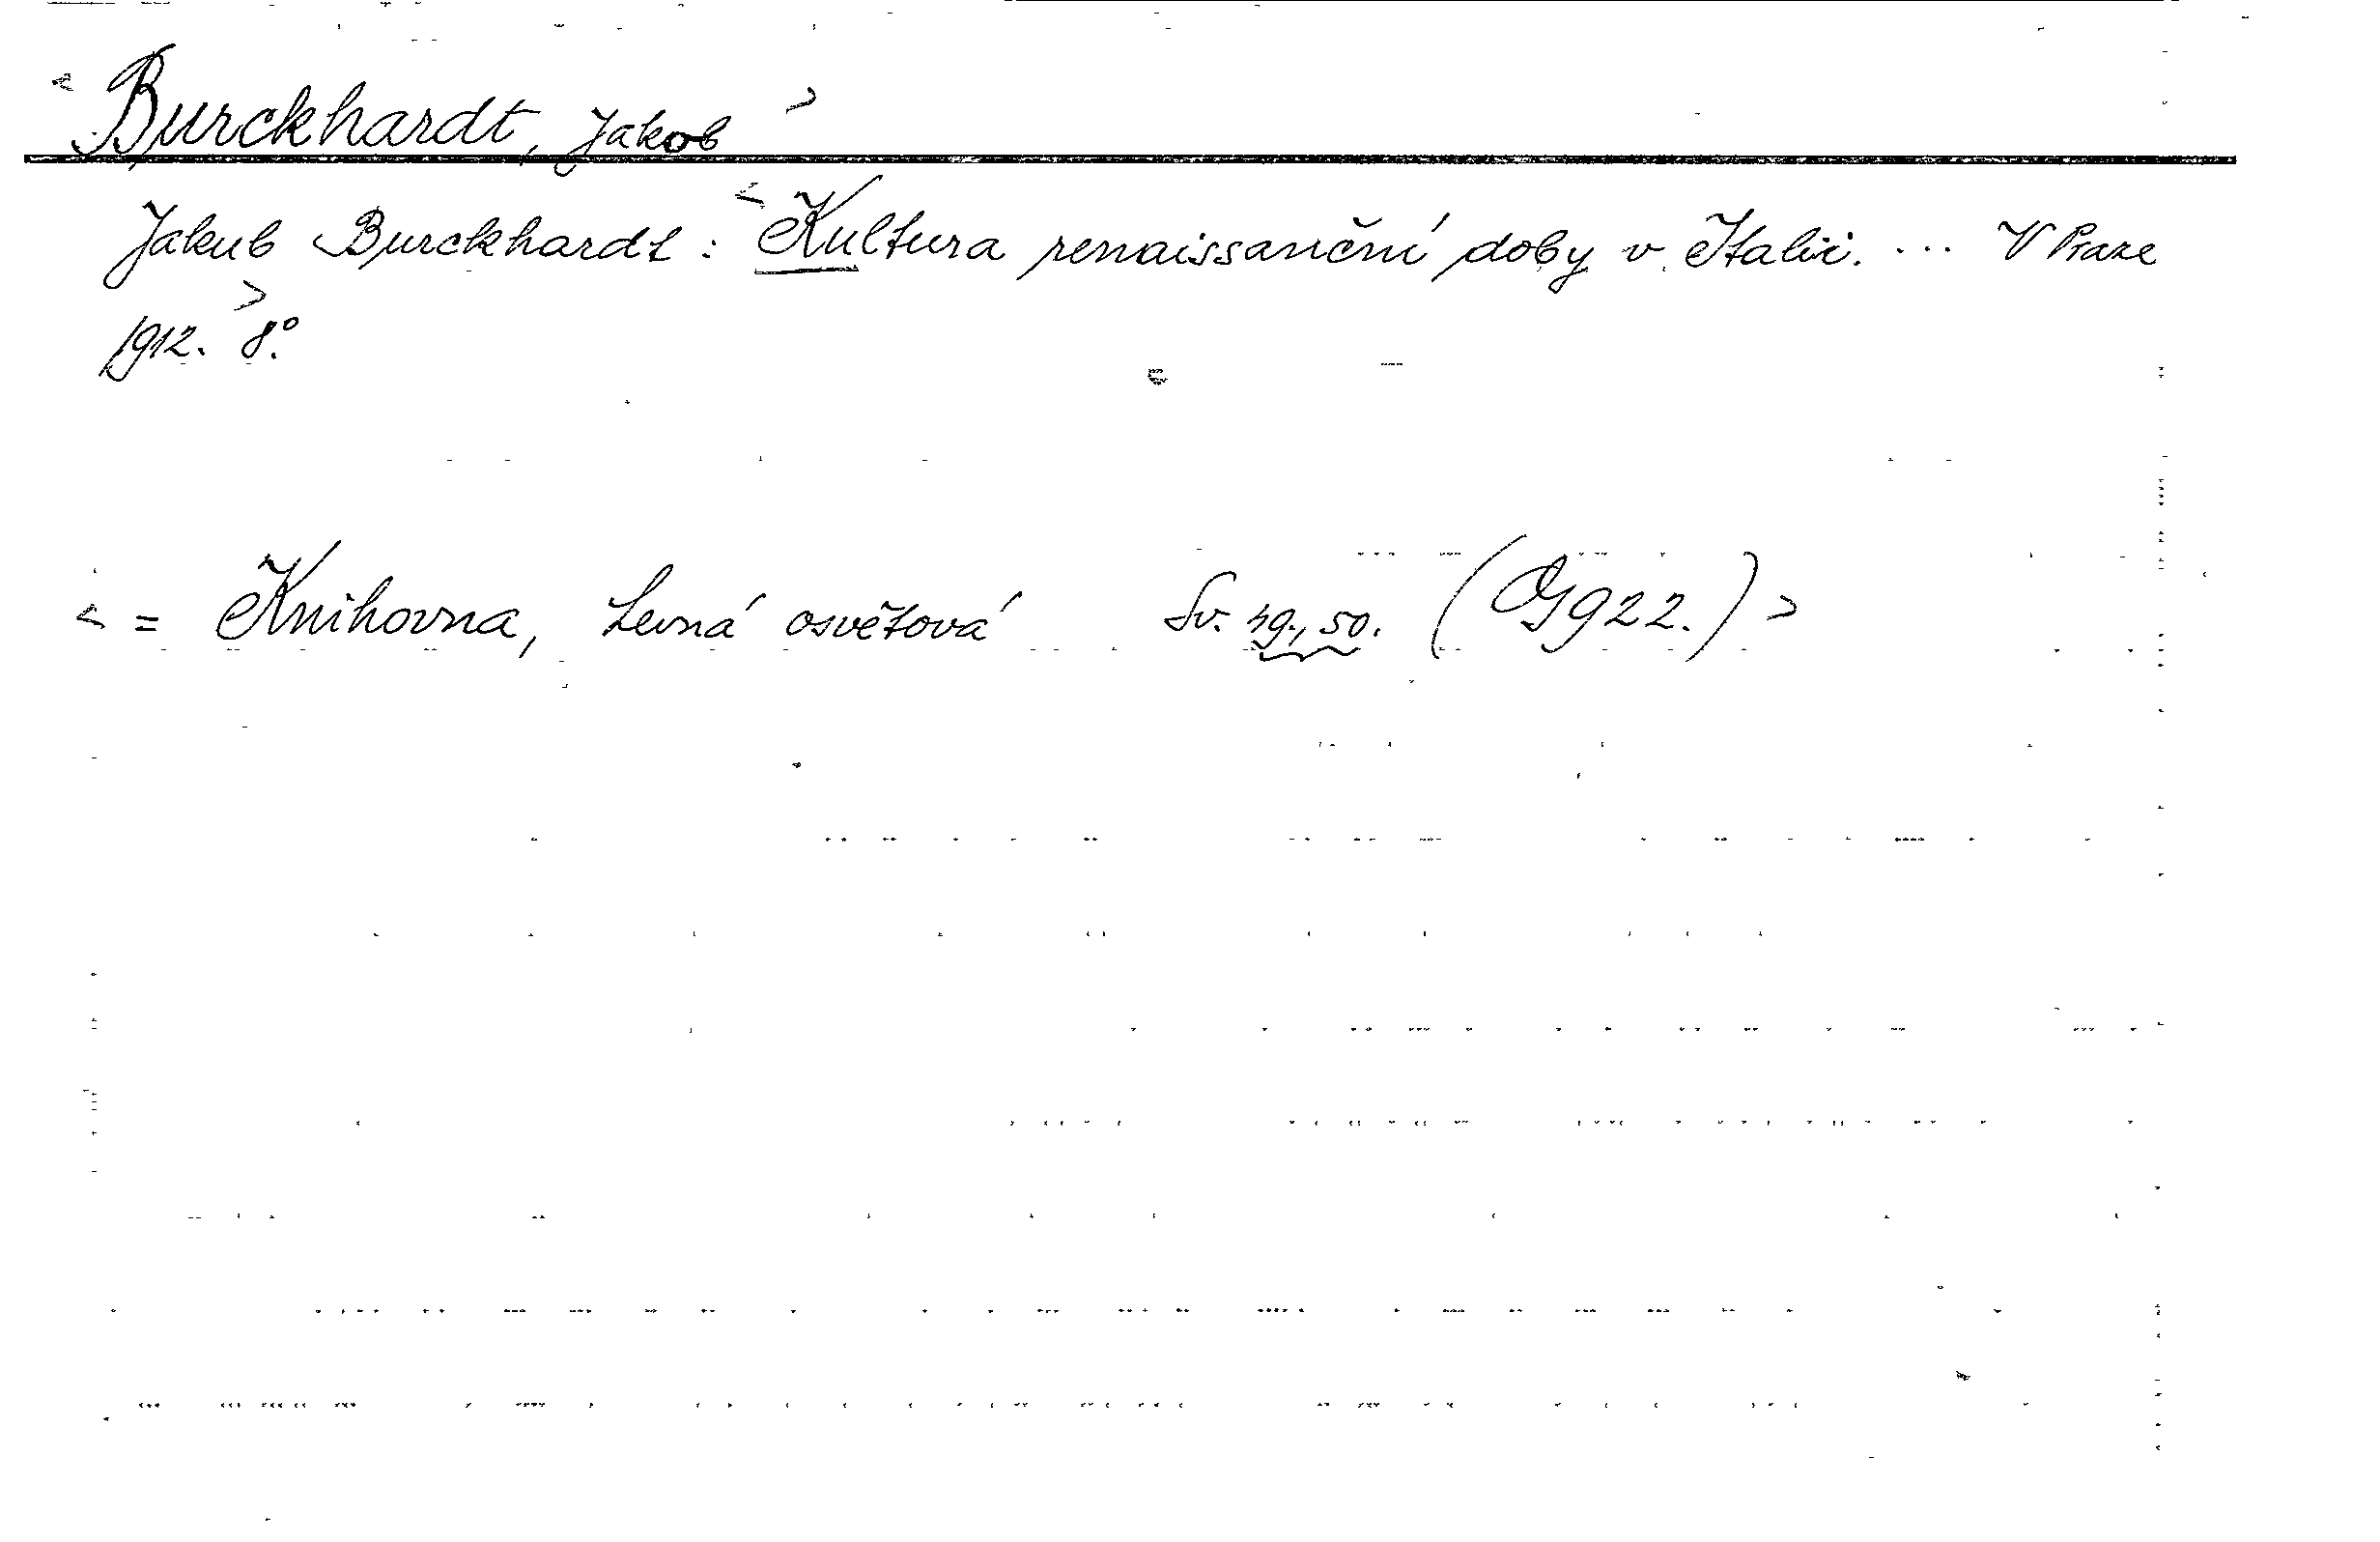 < Burckhardt, Jakob >
Jakub Burckhardt: < Kultura renaissanční doby v Italii. ... V Praze
1912. > 8°.
< = Knihovna, Levná osvětová Sv. 49., 50. (Gg 22.) >